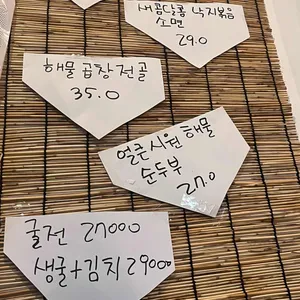 새콤달콤 낙지볶음
소면
29.0
해물 곱창 전골
35.0
얼큰 시원 해물
순두부
27.0
굴전 27000
생굴+김치 29000